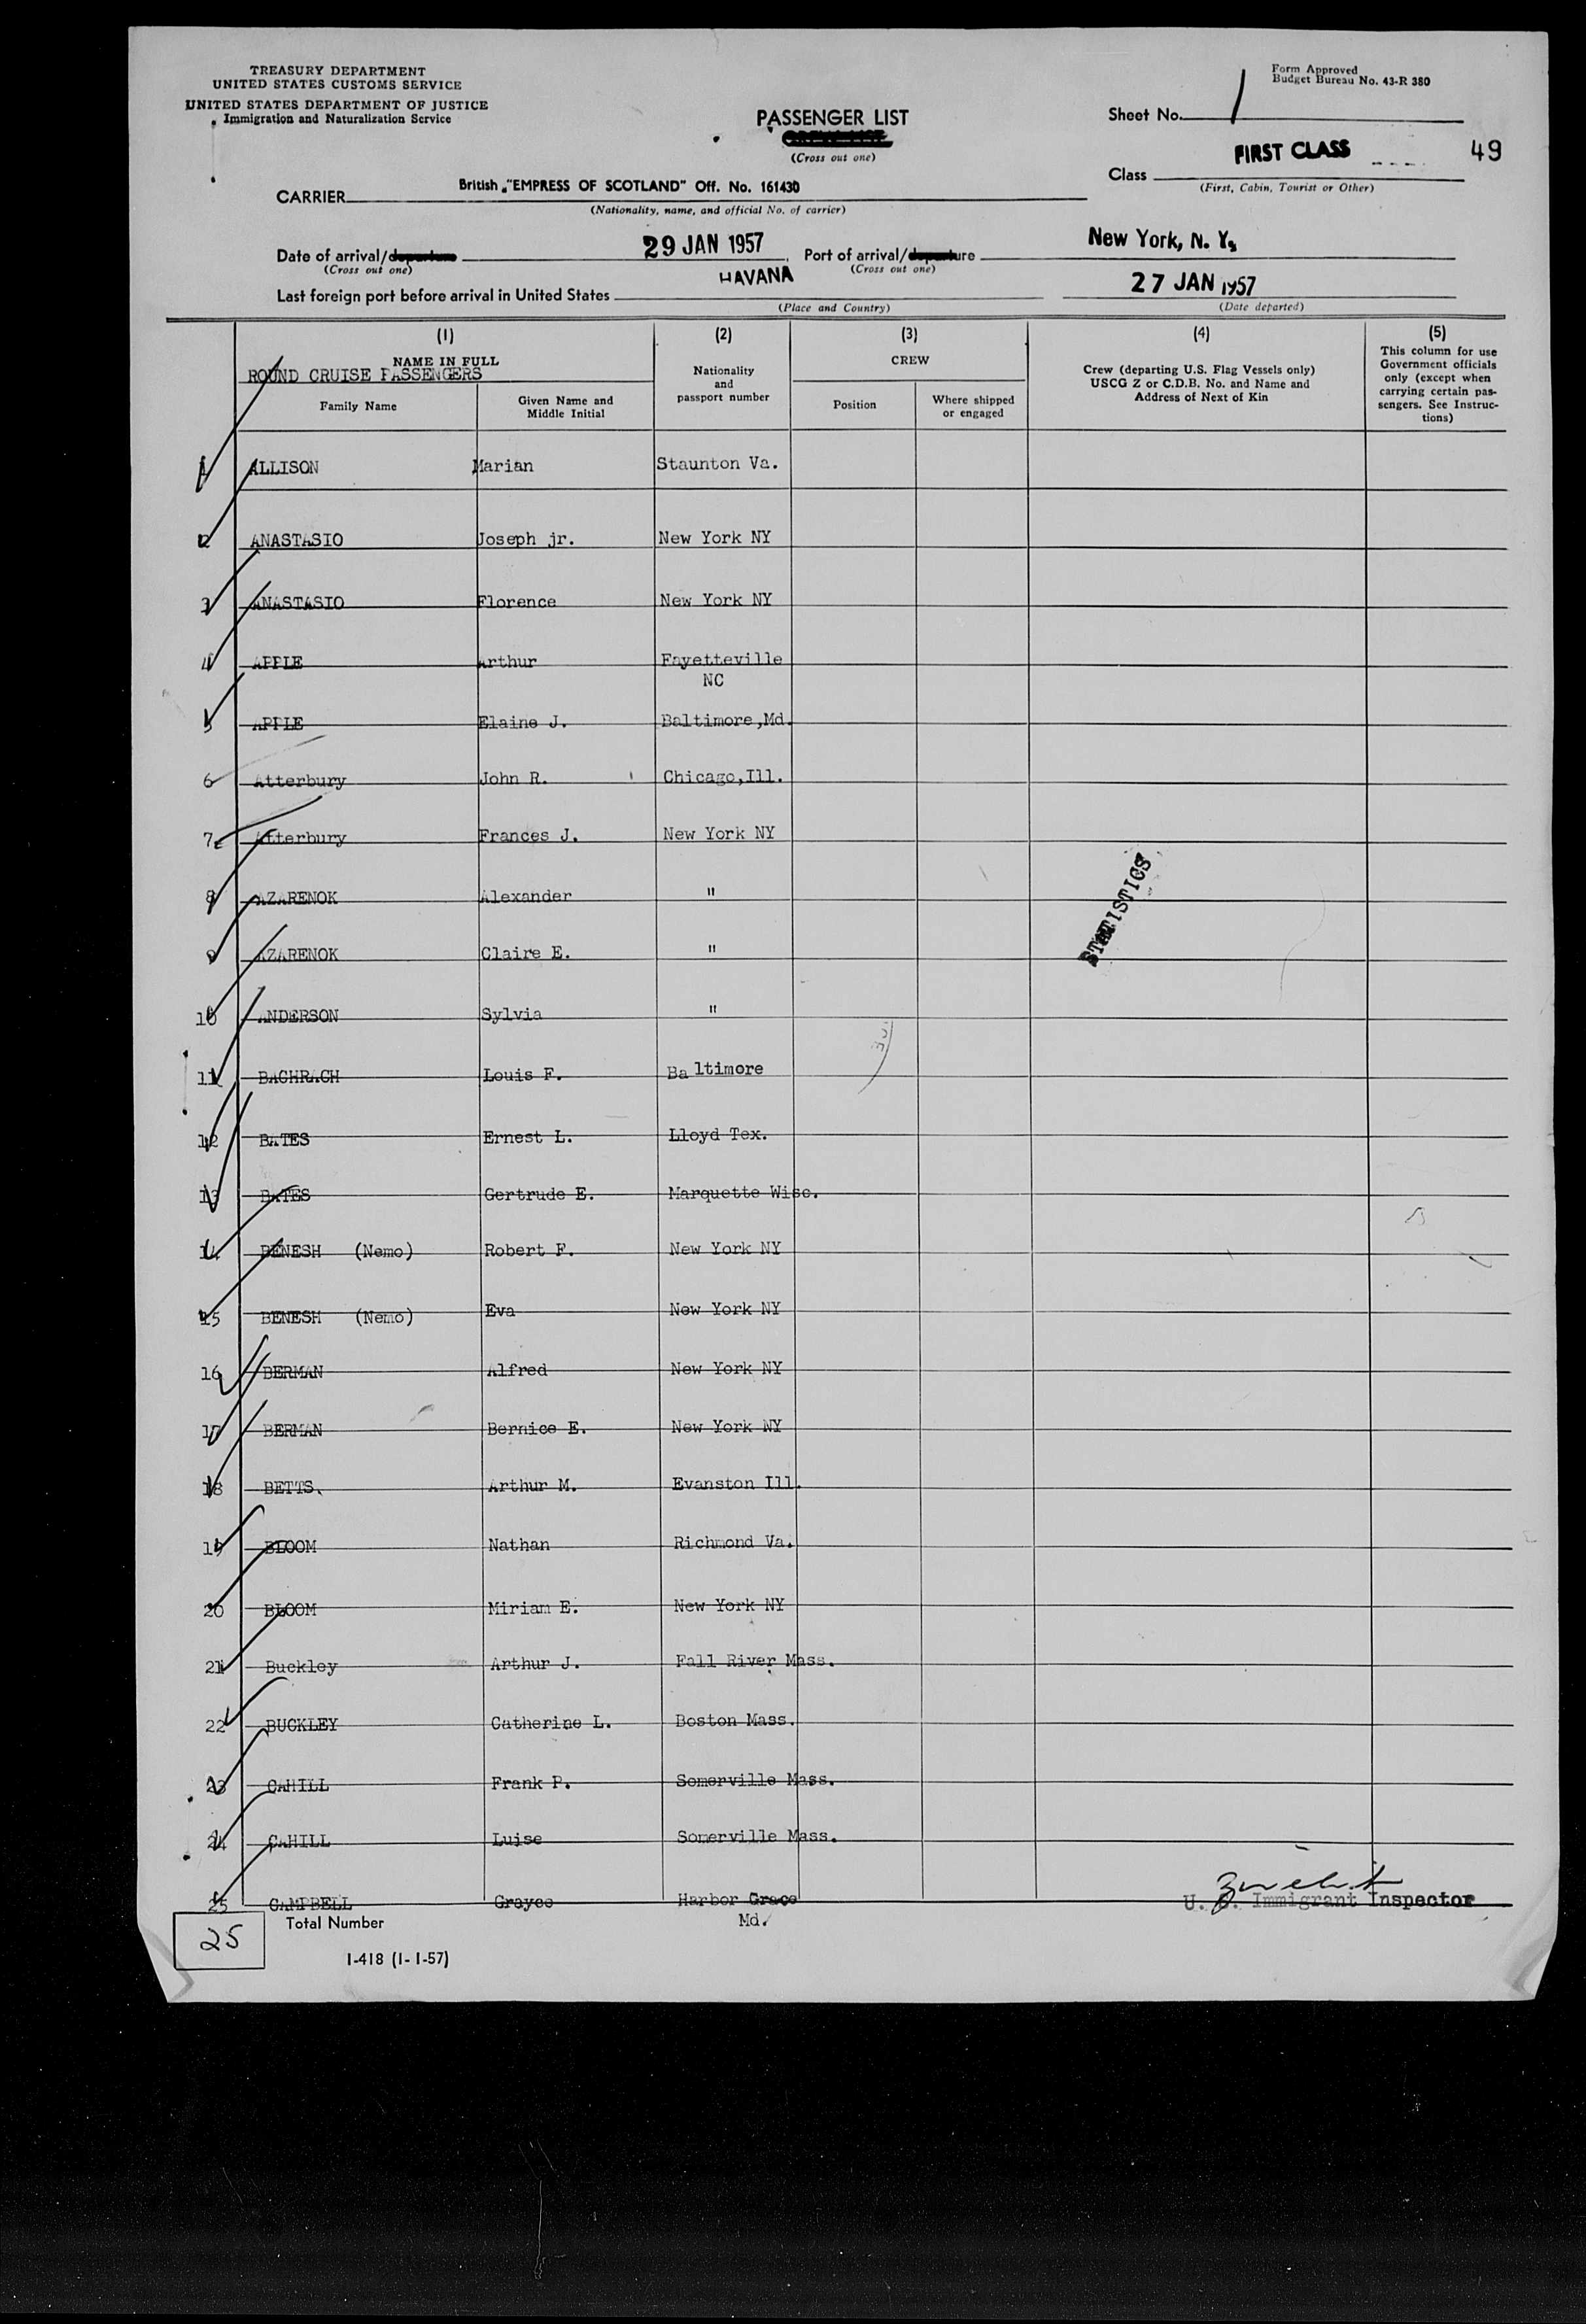 TREASURY DEPARTMENT
UNITED STATES CUSTOMS SERVICE
UNITED STATES DEPARTMENT OF JUSTICE
Immigration and Naturalization Service
Form Approved
Budget Bureau No. 43-R 380
PASSENGER LIST
CREW LIST
(Cross out one)
Sheet No. 1
Class FIRST CLASS 49
(First, Cabin, Tourist or Other)
CARRIER British "EMPRESS OF SCOTLAND" Off. No. 161430
(Nationality, name, and official No. of carrier)
Date of arrival/departure 29 JAN 1957, Port of arrival/departure New York, N. Y.
(Cross out one) (Cross out one)
Last foreign port before arrival in United States HAVANA 27 JAN 1957
(Place and Country) (Date departed)
(1) (2) (3) (4) (5)
NAME IN FULL
ROUND CRUISE PASSENGERS
Family Name
Given Name and
Middle Initial
Nationality
and
passport number
CREW
Position
Where shipped
or engaged
Crew (departing U.S. Flag Vessels only)
USCG Z or C.D.B. No. and Name and
Address of Next of Kin
This column for use
Government officials
only (except when
carrying certain pas-
sengers. See Instruc-
tions)
1 ALLISON Marian Staunton Va.
2 ANASTASIO Joseph jr. New York NY
3 ANASTASIO Florence New York NY
4 APPLE Arthur Fayetteville
NC
5 APPLE Elaine J. Baltimore,Md.
6 Atterbury John R. Chicago,Ill.
7 Atterbury Frances J. New York NY
8 AZARENOK Alexander "
STATISTICS
9 AZARENOK Claire E. "
10 ANDERSON Sylvia "
11 BACHRACH Louis F. Baltimore
12 BATES Ernest L. Lloyd Tex.
13 BATES Gertrude E. Marquette Wisc.
14 BENESH (Nemo) Robert F. New York NY
15 BENESH (Nemo) Eva New York NY
16 BERMAN Alfred New York NY
17 BERMAN Bernice E. New York NY
18 BETTS. Arthur M. Evanston Ill.
19 BLOOM Nathan Richmond Va.
20 BLOOM Miriam E. New York NY
21 Buckley Arthur J. Fall River Mass.
22 BUCKLEY Catherine L. Boston Mass.
23 CAHILL Frank P. Somerville Mass.
24 CAHILL Luise Somerville Mass.
25 CAMPBELL Grayce Harbor Grace
Md.
U. S. Immigrant Inspector
25 Total Number
I-418 (1-1-57)